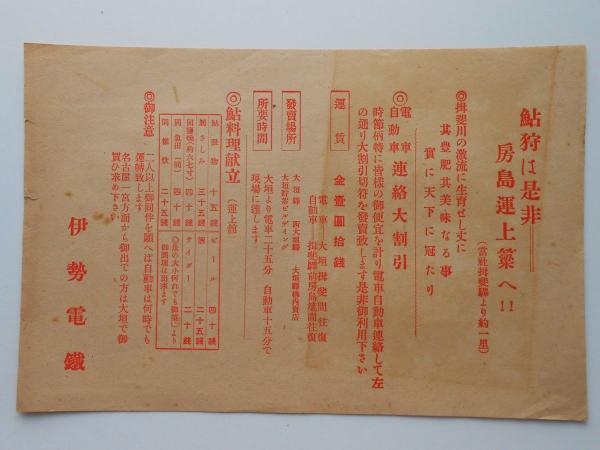 鮎狩は是非
房島運上簗へ!!
(當社揖斐驛より約一里)
◎揖斐川の激流に生育せし丈に
其豊肥其美味なる事
實に天下に冠たり
◎電車自動車連絡大割引
時節柄特に皆様の御便宜を計り電車自動車連絡して左
の通り大割引切符を發賣致します是非御利用下さい
運賃 金壹圓拾錢
電車 大垣揖斐間往復
自動車 揖斐驛前房島簗間往復
發賣場所
大垣驛 西大垣驛 大垣驛構内賣店
大垣貯蓄ビルディング
所要時間
大垣より電車二十五分 自動車十五分で
現場に達します
◎鮎料理献立 (運上館)
鮎煮物 十五錢 ビール 四十錢
同さしみ 三十五錢 酒 二十五錢
同鹽燒(約六七寸) 四十錢 サイダー 二十錢
同魚田(同) 四十錢
同雜炊 二十錢
◎魚の大小何れでも御儀により
御調理は出來ます
◎御注意
二八人以上御同伴を願へば自動車は何時でも
運轉致します
名古屋一宮方面から御出での方は大垣で御
買ひ求め下さい
伊勢電鐵